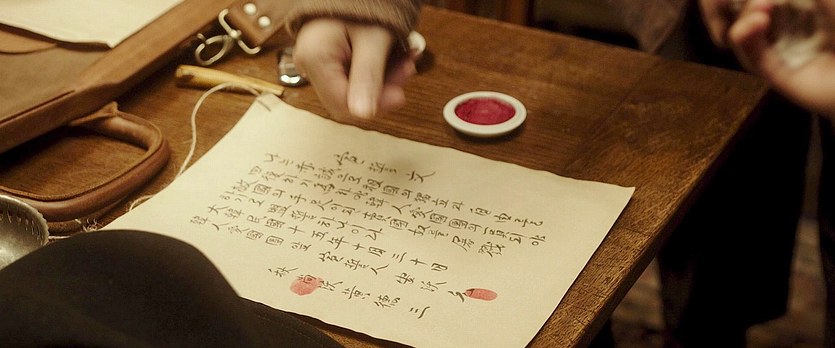 宣誓文
나는 赤誠으로 祖國의 獨立과 自由를
回復하기 爲하야 韓人愛國團의 一員이 되야
敵國의 屠戮
하기로 盟誓하나이다
大韓民國十五年十月三十日
韓人愛國團앞 宣誓人 安沃允
黃德三